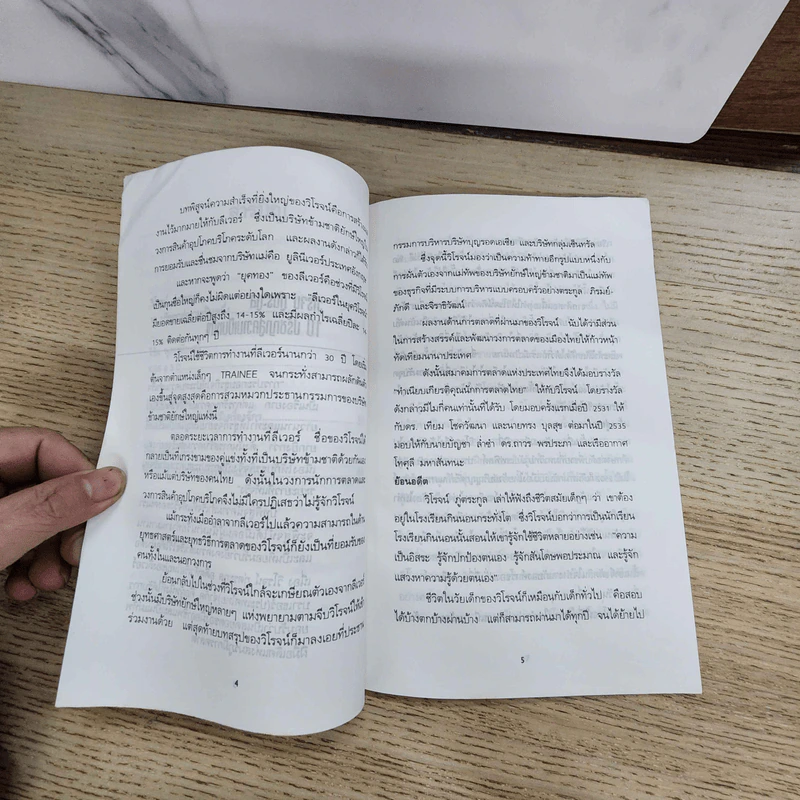 บทพิสูจน์ความสำเร็จที่ยิ่งใหญ่ของวิโรจน์คือการสร้าง
งานไว้มากมายให้กับลีเวอร์ ซึ่งเป็นบริษัทข้ามชาติยักษ์ใหญ่ใน
วงการสินค้าอุปโภคบริโภคระดับโลก และผลงานดังกล่าวก็ได้รับ
การยอมรับและชื่นชมจากบริษัทแม่คือ ยูลินีเวอร์ประเทศอังกฤษ
และหากจะพูดว่า "ยุคทอง" ของลีเวอร์คือช่วงที่มีวิโรจน์
เป็นกุนซือใหญ่ก็คงไม่ผิดแต่อย่างใดเพราะ "ลีเวอร์ในยุควิโรจน์"
มียอดขายเฉลี่ยต่อปีสูงถึง 14-15% และมีผลกำไรเฉลี่ยปีละ 14-
15% ติดต่อกันทุกๆ ปี
วิโรจน์ใช้ชีวิตการทำงานที่ลีเวอร์นานกว่า 30 ปี โดยเริ่ม
ต้นจากตำแหน่งเล็กๆ TRAINEE จนกระทั่งสามารถผลักดันตัว
เองขึ้นสู่จุดสูงสุดคือการสวมหมวกประธานกรรมการของบริษัท
ข้ามชาติยักษ์ใหญ่แห่งนี้
ตลอดระยะเวลาการทำงานที่ลีเวอร์ ชื่อของวิโรจน์ได้
กลายเป็นที่เกรงขามของคู่แข่งทั้งที่เป็นบริษัทข้ามชาติด้วยกันเอง
หรือแม้แต่บริษัทของคนไทย ดังนั้นในวงการนักการตลาดและ
วงการสินค้าอุปโภคบริโภคจึงไม่มีใครปฏิเสธว่าไม่รู้จักวิโรจน์
แม้กระทั่งเมื่ออำลาจากลีเวอร์ไปแล้วความสามารถในด้าน
ยุทธศาสตร์และยุทธวิธีการตลาดของวิโรจน์ก็ยังเป็นที่ยอมรับของ
คนทั้งในและนอกวงการ
ย้อนกลับไปในช่วงที่วิโรจน์ใกล้จะเกษียณตัวเองจากลีเวอร์
ช่วงนั้นมีบริษัทยักษ์ใหญ่หลายๆ แห่งพยายามตามจีบวิโรจน์ให้เข้า
ร่วมงานด้วย แต่สุดท้ายบทสรุปของวิโรจน์ก็มาลงเอยที่ประธาน
4
กรรมการบริหารบริษัทบุญรอดเอเซีย และบริษัทกลุ่มเซ็นทรัล
ซึ่งจุดนี้วิโรจน์มองว่าเป็นความท้าทายอีกรูปแบบหนึ่งกับ
การผันตัวเองจากแม่ทัพของบริษัทยักษ์ใหญ่ข้ามชาติมาเป็นแม่ทัพ
ของธุรกิจที่มีระบบการบริหารแบบครอบครัวอย่างตระกูล ภิรมย์-
ภักดี และจิราธิวัฒน์
ผลงานด้านการตลาดที่ผ่านมาของวิโรจน์ นับได้ว่ามีส่วน
ในการสร้างสรรค์และพัฒนาวงการตลาดของเมืองไทยให้ก้าวหน้า
ทัดเทียมนานาประเทศ
ดังนั้นสมาคมการตลาดแห่งประเทศไทยจึงได้มอบรางวัล
"ทำเนียบเกียรติคุณนักการตลาดไทย" ให้กับวิโรจน์ โดยรางวัล
ดังกล่าวมีไม่กี่คนเท่านั้นที่ได้รับ โดยมอบครั้งแรกเมื่อปี 2531 ให้
กับดร. เทียม โชควัฒนา และนายทรง บุลสุข ต่อมาในปี 2535
มอบให้กับนายบัญชา ล่ำซำ ดร.ถาวร พรประภา และเรืออากาศ
โทศุลี มหาสันทนะ
ย้อนอดีต
วิโรจน์ ภู่ตระกูล เล่าให้ฟังถึงชีวิตสมัยเด็กๆ ว่า เขาต้อง
อยู่ในโรงเรียนกินนอนกระทั่งโต ซึ่งวิโรจน์บอกว่าการเป็นนักเรียน
โรงเรียนกินนอนนั้นสอนให้เขารู้จักใช้ชีวิตหลายอย่างเช่น "ความ
เป็นอิสระ รู้จักปกป้องตนเอง รู้จักสันโดษพอประมาณ และรู้จัก
แสวงหาความรู้ด้วยตนเอง"
ชีวิตในวัยเด็กของวิโรจน์ก็เหมือนกับเด็กทั่วไป คือสอบ
ได้บ้างตกบ้างผ่านบ้าง แต่ก็สามารถผ่านมาได้ทุกปี จนได้ย้ายไป
5